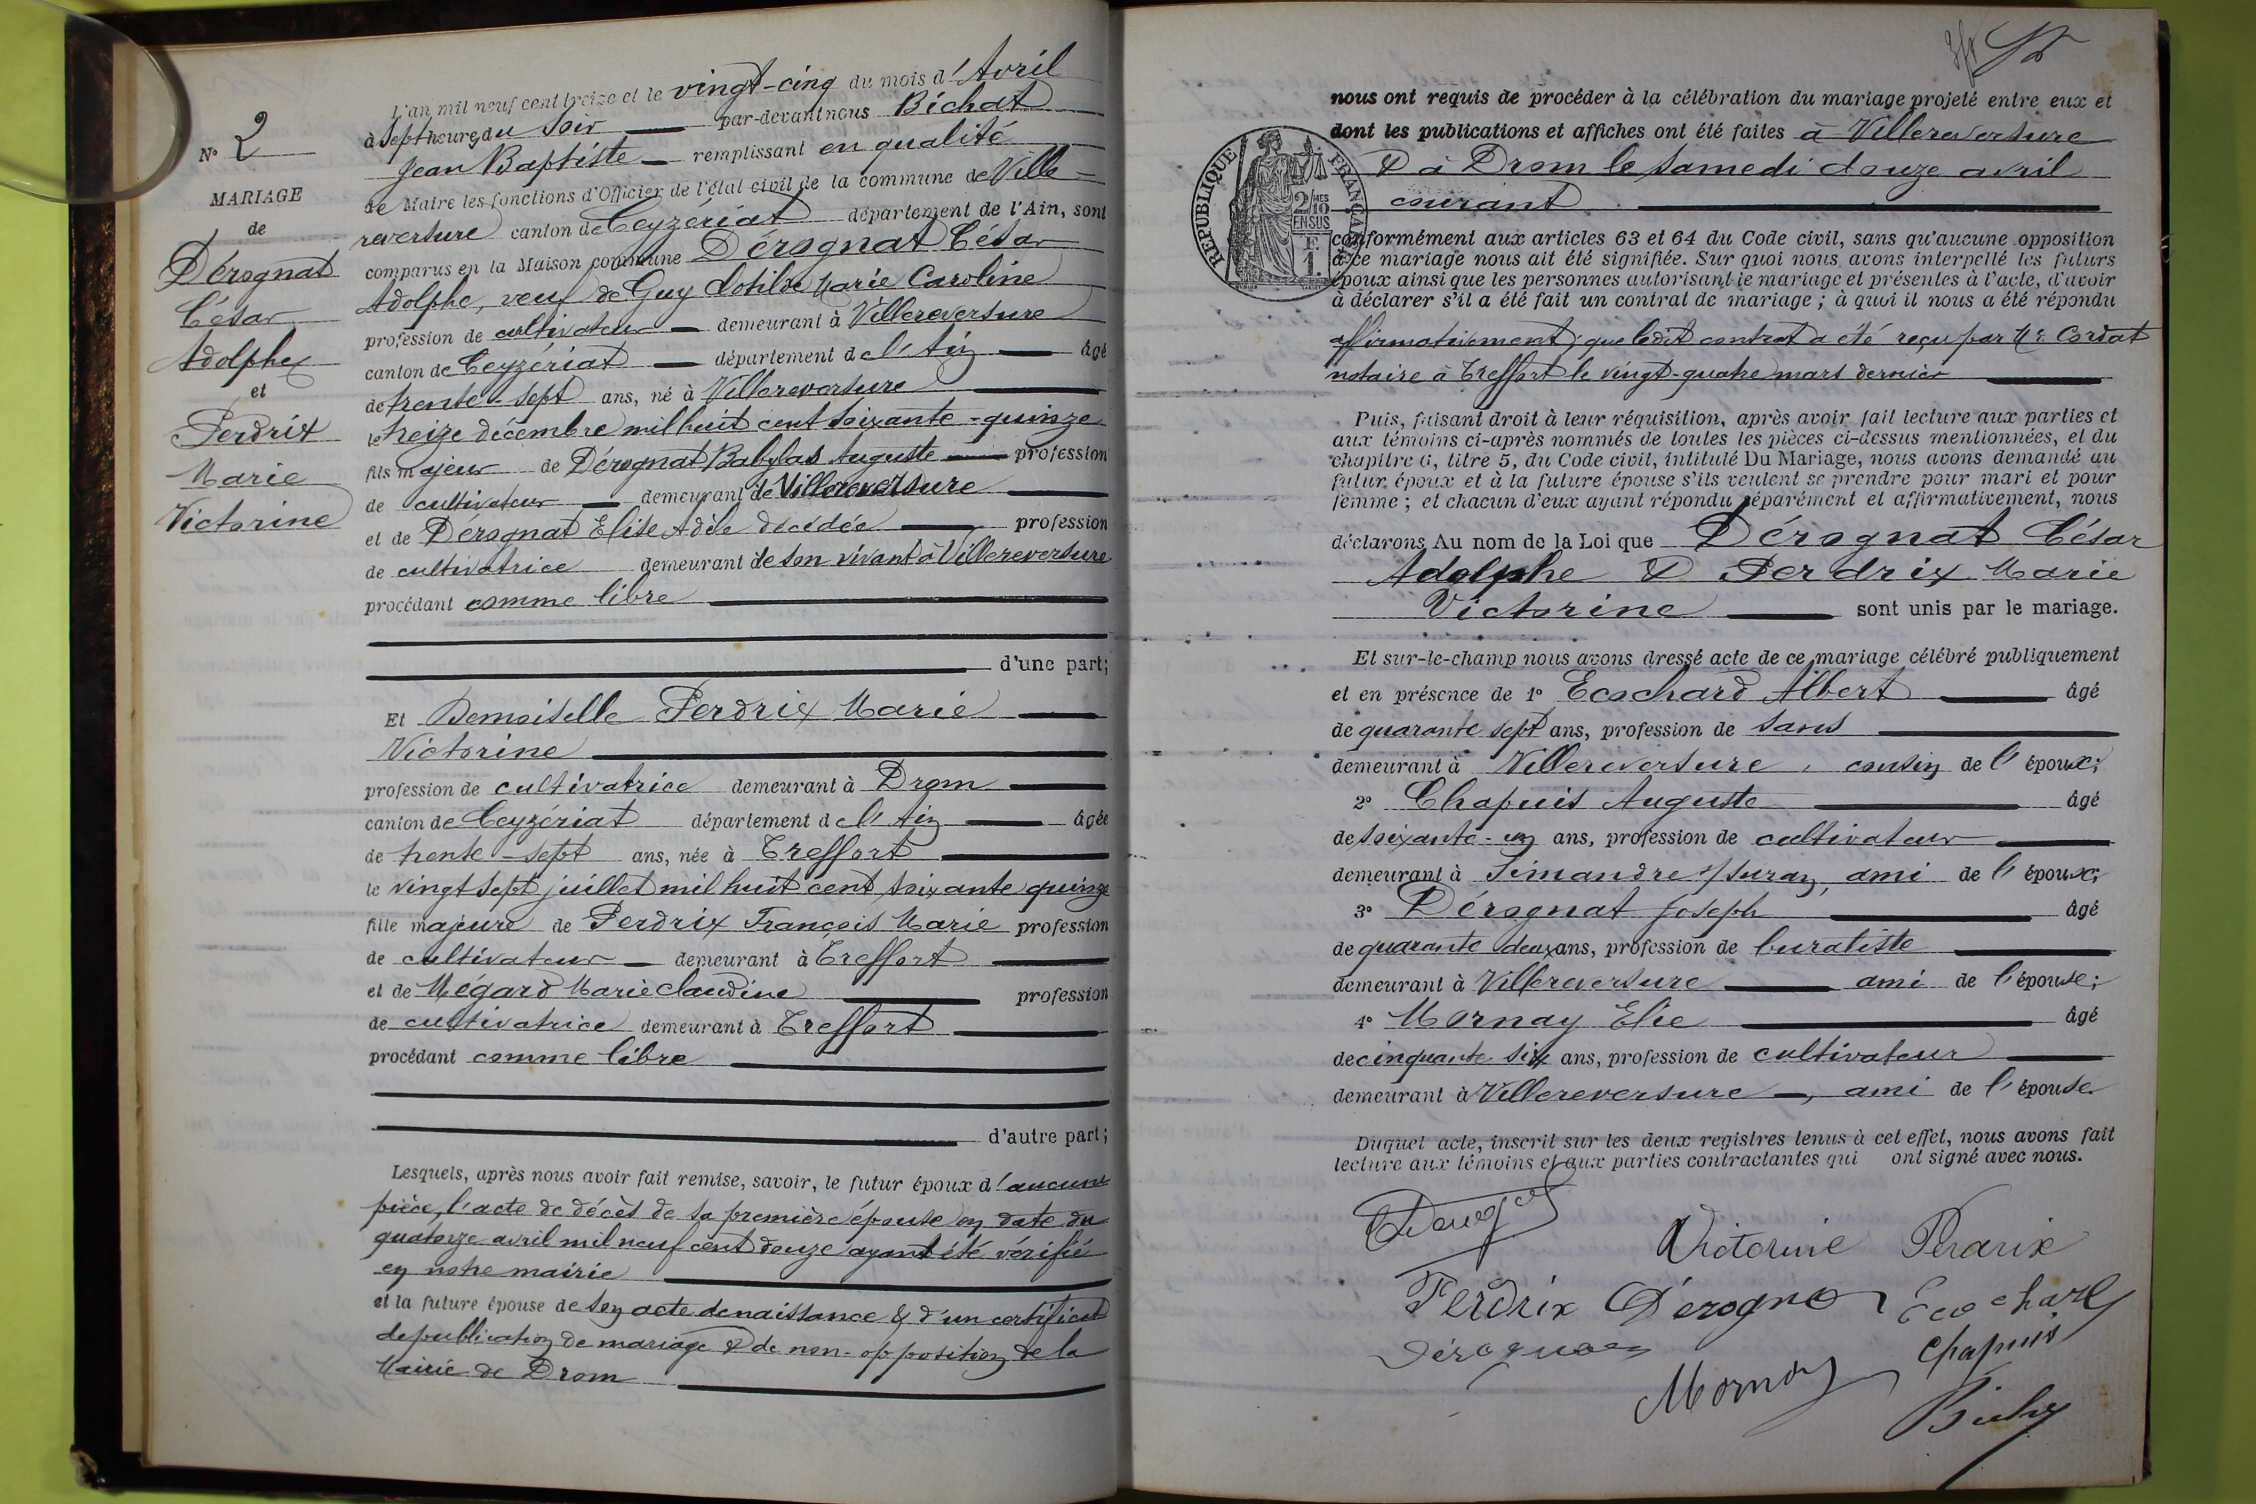 N° 2
MARIAGE
de
Dérognat
César
Adolphe
et
Perdrix
Marie
Victorine
L'an mil neuf cent treize et le vingt-cinq du mois d'Avril
à sept heures du soir par-devant nous Bichat
Jean Baptiste remplissant en qualité
de Maire les fonctions d'Officier de l'état civil de la commune de Ville=
reversure canton de Ceyzériat département de l'Ain, sont
comparus en la Maison commune Dérognat César
Adolphe, veuf de Guy Clotilde Marie Caroline
profession de cultivateur demeurant à Villereversure
canton de Ceyzériat département de l'Ain âgé
de trente-sept ans, né à Villereversure
le treize décembre mil huit cent soixante-quinze
fils majeur de Dérognat Babylas Auguste profession
de cultivateur demeurant de Villereversure
et de Dérognat Elise Adèle décédée profession
de cultivatrice demeurant de son vivant à Villereversure
procédant comme libre
d'une part;
Et Demoiselle Perdrix Marie
Victorine
profession de cultivatrice demeurant à Drom
canton de Ceyzériat département de l'Ain âgée
de trente-sept ans, née à Treffort
le vingt sept juillet mil huit cent soixante quinze
fille majeure de Perdrix François Marie profession
de cultivateur demeurant à Treffort
et de Mégard Marie Claudine profession
de cultivatrice demeurant à Treffort
procédant comme libre
d'autre part;
Lesquels, après nous avoir fait remise, savoir, le futur époux d'aucune
pièce, l'acte de décès de sa première épouse en date du
quatorze avril mil neuf cent douze ayant été vérifié
en notre mairie
et la future épouse de son acte de naissance & d'un certificat
de publication de mariage & de non-opposition de la
Mairie de Drom
nous ont requis de procéder à la célébration du mariage projeté entre eux et
dont les publications et affiches ont été faites à Villereversure
& à Drom le samedi douze avril
courant
REPUBLIQUE FRANÇAISE
2/10 MES
EN SUS
F.
1.
conformément aux articles 63 et 64 du Code civil, sans qu'aucune opposition
à ce mariage nous ait été signifiée. Sur quoi nous avons interpellé les futurs
époux ainsi que les personnes autorisant le mariage et présentes à l'acte, d'avoir
à déclarer s'il a été fait un contrat de mariage; à quoi il nous a été répondu
affirmativement, que ledit contrat a été reçu par Me Cordat
notaire à Treffort le vingt-quatre mars dernier
Puis, faisant droit à leur réquisition, après avoir fait lecture aux parties et
aux témoins ci-après nommés de toutes les pièces ci-dessus mentionnées, et du
chapitre 6, titre 5, du Code civil, intitulé Du Mariage, nous avons demandé au
futur époux et à la future épouse s'ils veulent se prendre pour mari et pour
femme; et chacun d'eux ayant répondu séparément et affirmativement, nous
déclarons Au nom de la Loi que Dérognat César
Adolphe & Perdrix Marie
Victorine sont unis par le mariage.
Et sur-le-champ nous avons dressé acte de ce mariage célébré publiquement
et en présence de 1° Ecochard Albert âgé
de quarante sept ans, profession de sans
demeurant à Villereversure, cousin de l'époux;
2° Chapuis Auguste âgé
de soixante-un ans, profession de cultivateur
demeurant à Simandre s/Suran, ami de l'époux;
3° Dérognat Joseph âgé
de quarante deux ans, profession de buraliste
demeurant à Villereversure ami de l'épouse;
4° Mornay Elie âgé
de cinquante six ans, profession de cultivateur
demeurant à Villereversure, ami de l'épouse.
Duquel acte, inscrit sur les deux registres tenus à cet effet, nous avons fait
lecture aux témoins et aux parties contractantes qui ont signé avec nous.
Victorine Perdrix
Perdrix Dérognat Ecochard
Dérognat Chapuis
Mornay
Bichat